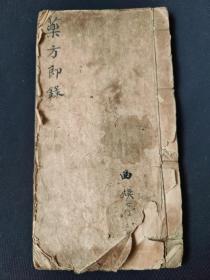 藥方即錄
曲